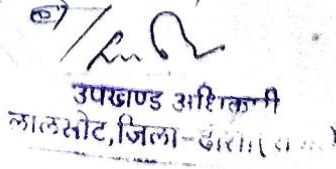 उपखण्ड अधिकारी
लालसोट, जिला-दौसा